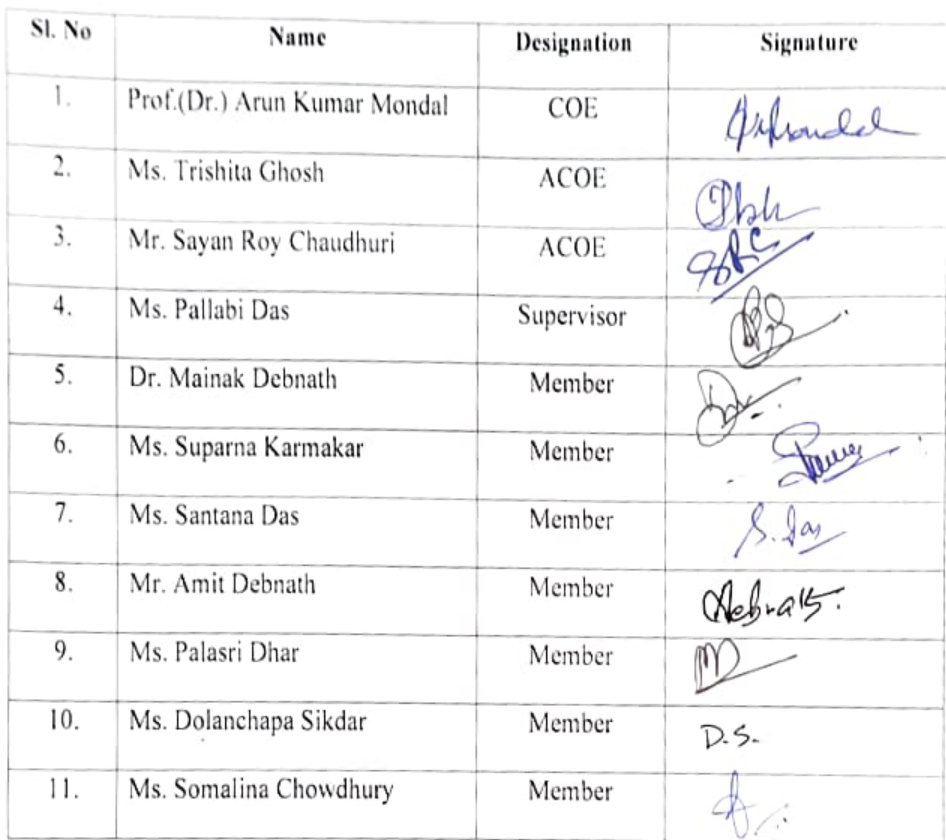 Sl. No Name Designation Signature
1. Prof.(Dr.) Arun Kumar Mondal COE
2. Ms. Trishita Ghosh ACOE
3. Mr. Sayan Roy Chaudhuri ACOE SRC
4. Ms. Pallabi Das Supervisor
5. Dr. Mainak Debnath Member
6. Ms. Suparna Karmakar Member
7. Ms. Santana Das Member S. Das
8. Mr. Amit Debnath Member ADebnath.
9. Ms. Palasri Dhar Member
10. Ms. Dolanchapa Sikdar Member D.S.
11. Ms. Somalina Chowdhury Member